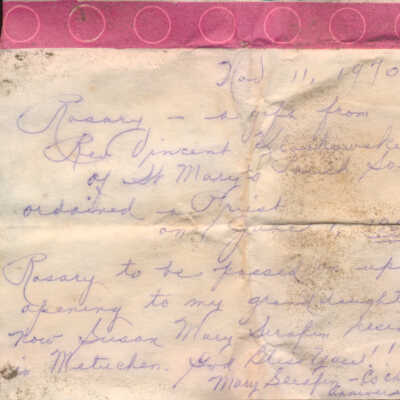 Nov 11, 1990
Rosary - a gift from
Rev Vincent
of St Mary's Parish So
ordained a Priest
on June 1,
Rosary to be passed on up
opening to my granddaught
now Susan Mary Serafin
in Metuchen. God Bless You!!
Mary Serafin -
annivers